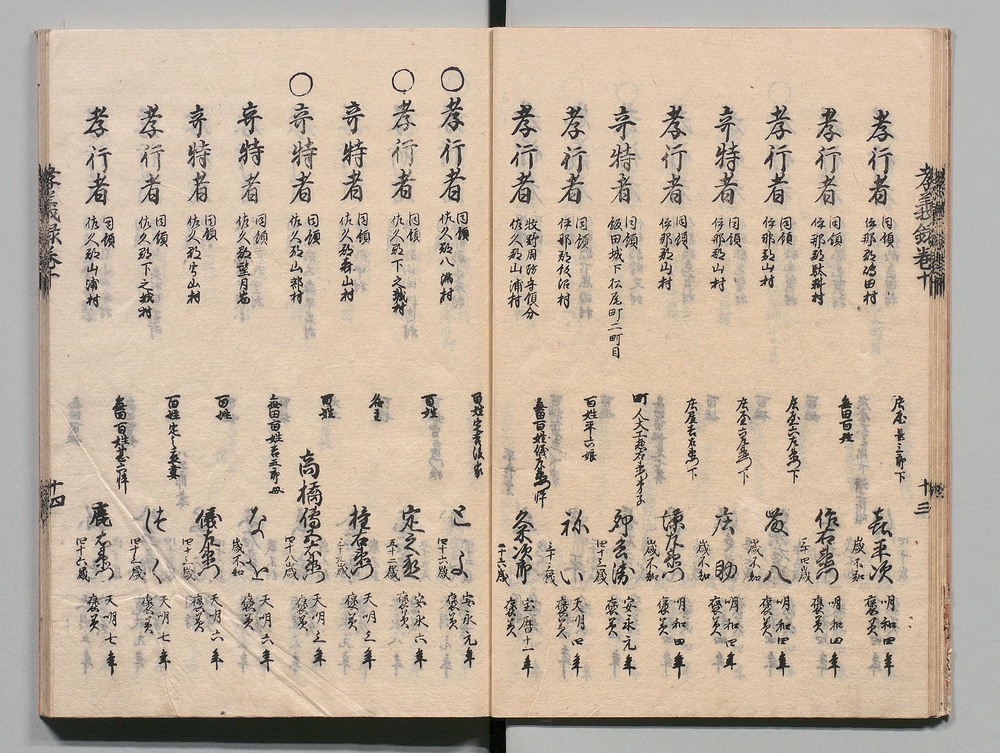 孝義録巻十 十三
孝行者 同領 伊那郡嶋田村 庄屋長三郎下 喜平次 歳不知 明和四年 褒美
孝行者 同領 伊那郡駄科村 無田百姓 作右衛門 三十四歳 明和四年 褒美
孝行者 同領 伊那郡山村 庄屋六左衛門下 藤八 歳不知 明和四年 褒美
奇特者 同領 伊那郡山村 庄屋六左衛門下 庄助 歳不知 明和四年 褒美
孝行者 同領 伊那郡山村 衛門下 左衛門 歳不知 明和四年 褒美
奇特者 同領 飯田城下松尾町二町目 町人大工 右衛門弟子 兵衛 四十三歳 安永元年 褒美
孝行者 同領 伊那郡飯沼村 百姓平六娘 祢い 天明四年 褒美
孝行者 牧野周防守領分 佐久郡山浦村 無田百姓儀左衛門悴 粂次郎 二十六歳 宝暦十一年 褒美
○孝行者 同領 佐久郡八満村 百姓定右衛門後家 とよ 四十六歳 安永元年 褒美
○孝行者 同領 佐久郡下之城村 百姓 定之丞 五十二歳 安永六年 褒美
奇特者 同領 佐久郡森山村 名主 権右衛門 天明三年 褒美
○奇特者 同領 佐久郡山部村 百姓 高橋 右衛門 四十八歳 天明三年 褒美
奇特者 同領 佐久郡望月宿 無田百姓吉五郎母 なを 歳不知 天明六年 褒美
奇特者 同領 佐久郡 山村 百姓 儀左衛門 四十二歳 天明六年 褒美
孝行者 同領 佐久郡下之城村 百姓定之丞妻 つく 四十三歳 天明七年 褒美
孝行者 同領 佐久郡山浦村 無田百姓甚六悴 右衛門 四十六歳 天明七年 褒美
孝義録巻十 十四